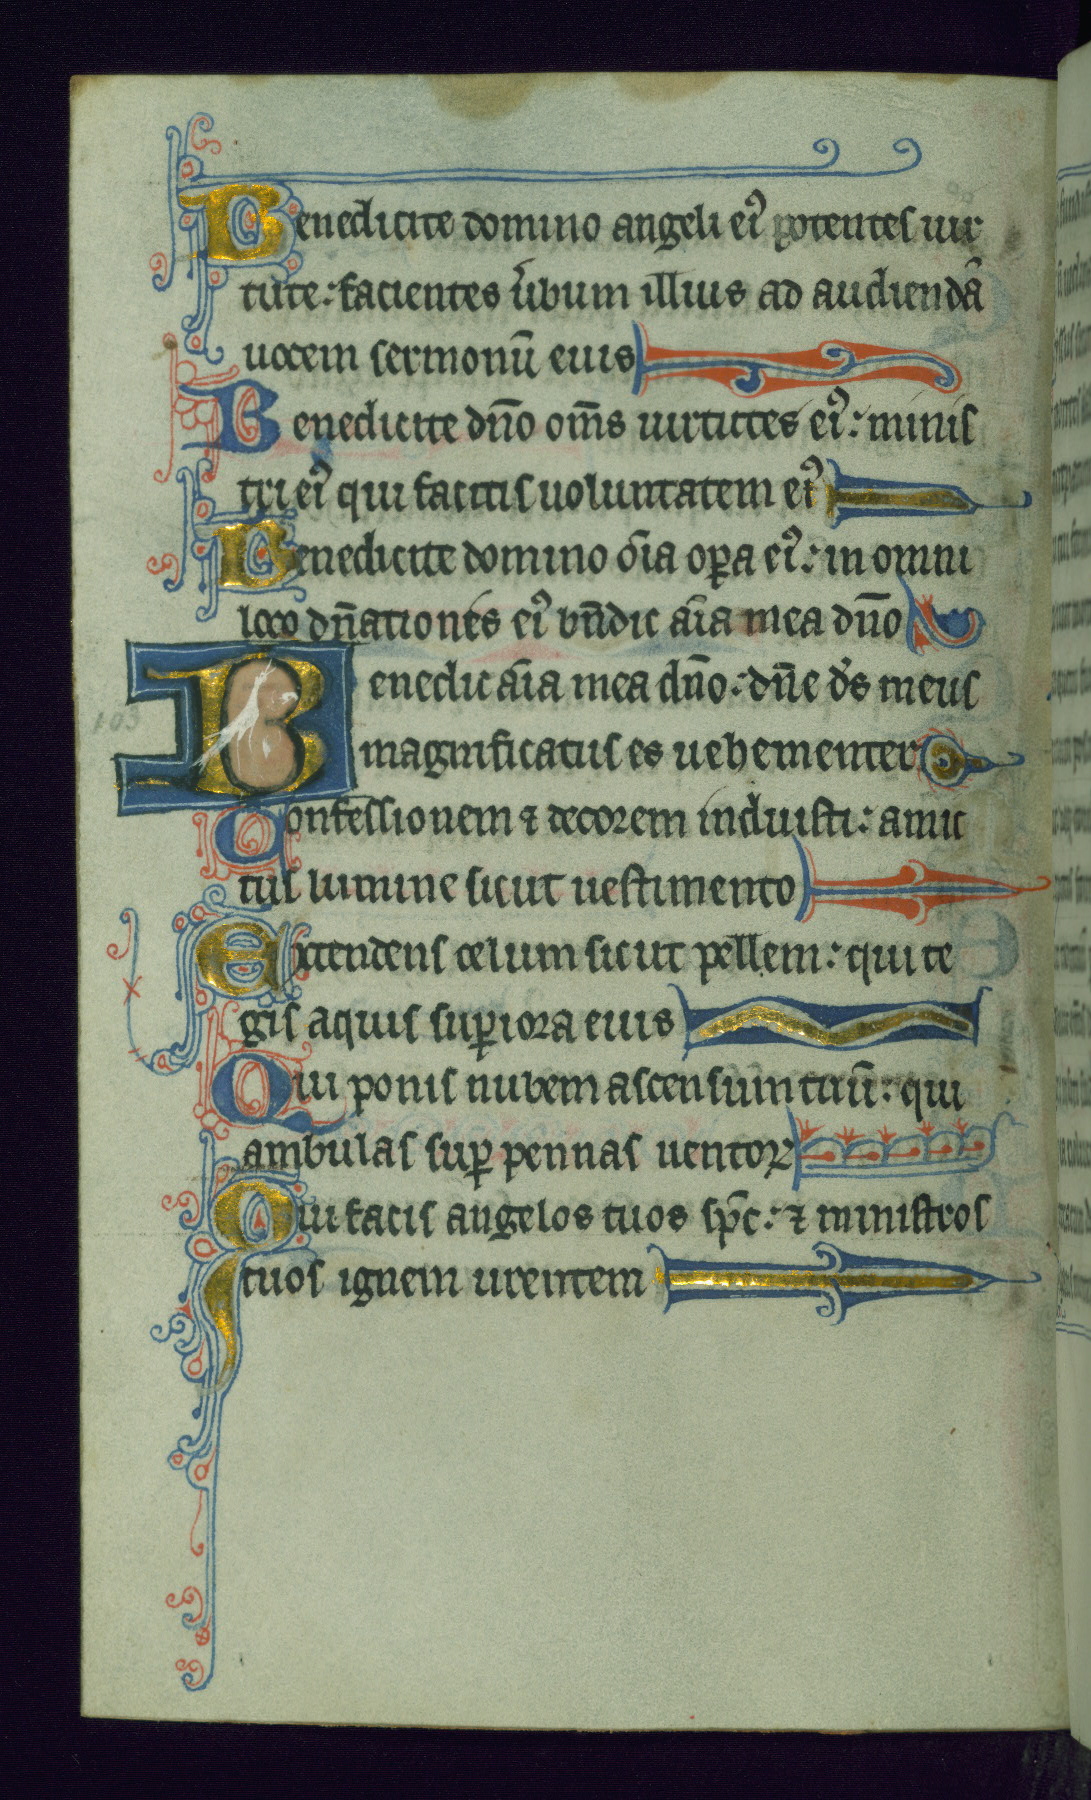 Benedicite domino angeli eiꝰ potentes uir
tute: facientes u͛bum illius ad audiendā
uocem sermonū euis
Benedicite dn̄o om̄s uirtutes eiꝰ: minis
tri eiꝰ qui facitis uoluntatem eiꝰ
Benedicite domino oīa oꝑa eiꝰ: in omni
loco dn̄ationes eiꝰ bn̄dic aīa mea dn̄o
Benedic aīa mea dn̄o: dn̄e ds̄ meus
103
magnificatus es uehementer
Confessionem ⁊ decorem induisti: amic
tus lumine sicut uestimento
Extendens celum sicut pellem: qui te
gis aquis suꝑiora euis
Qui ponis nubem ascensum tuū: qui
ambulas suꝑ pennas uentoꝝ
Qui facis angelos tuos sp̄c: ⁊ ministros
tuos ignem urentem